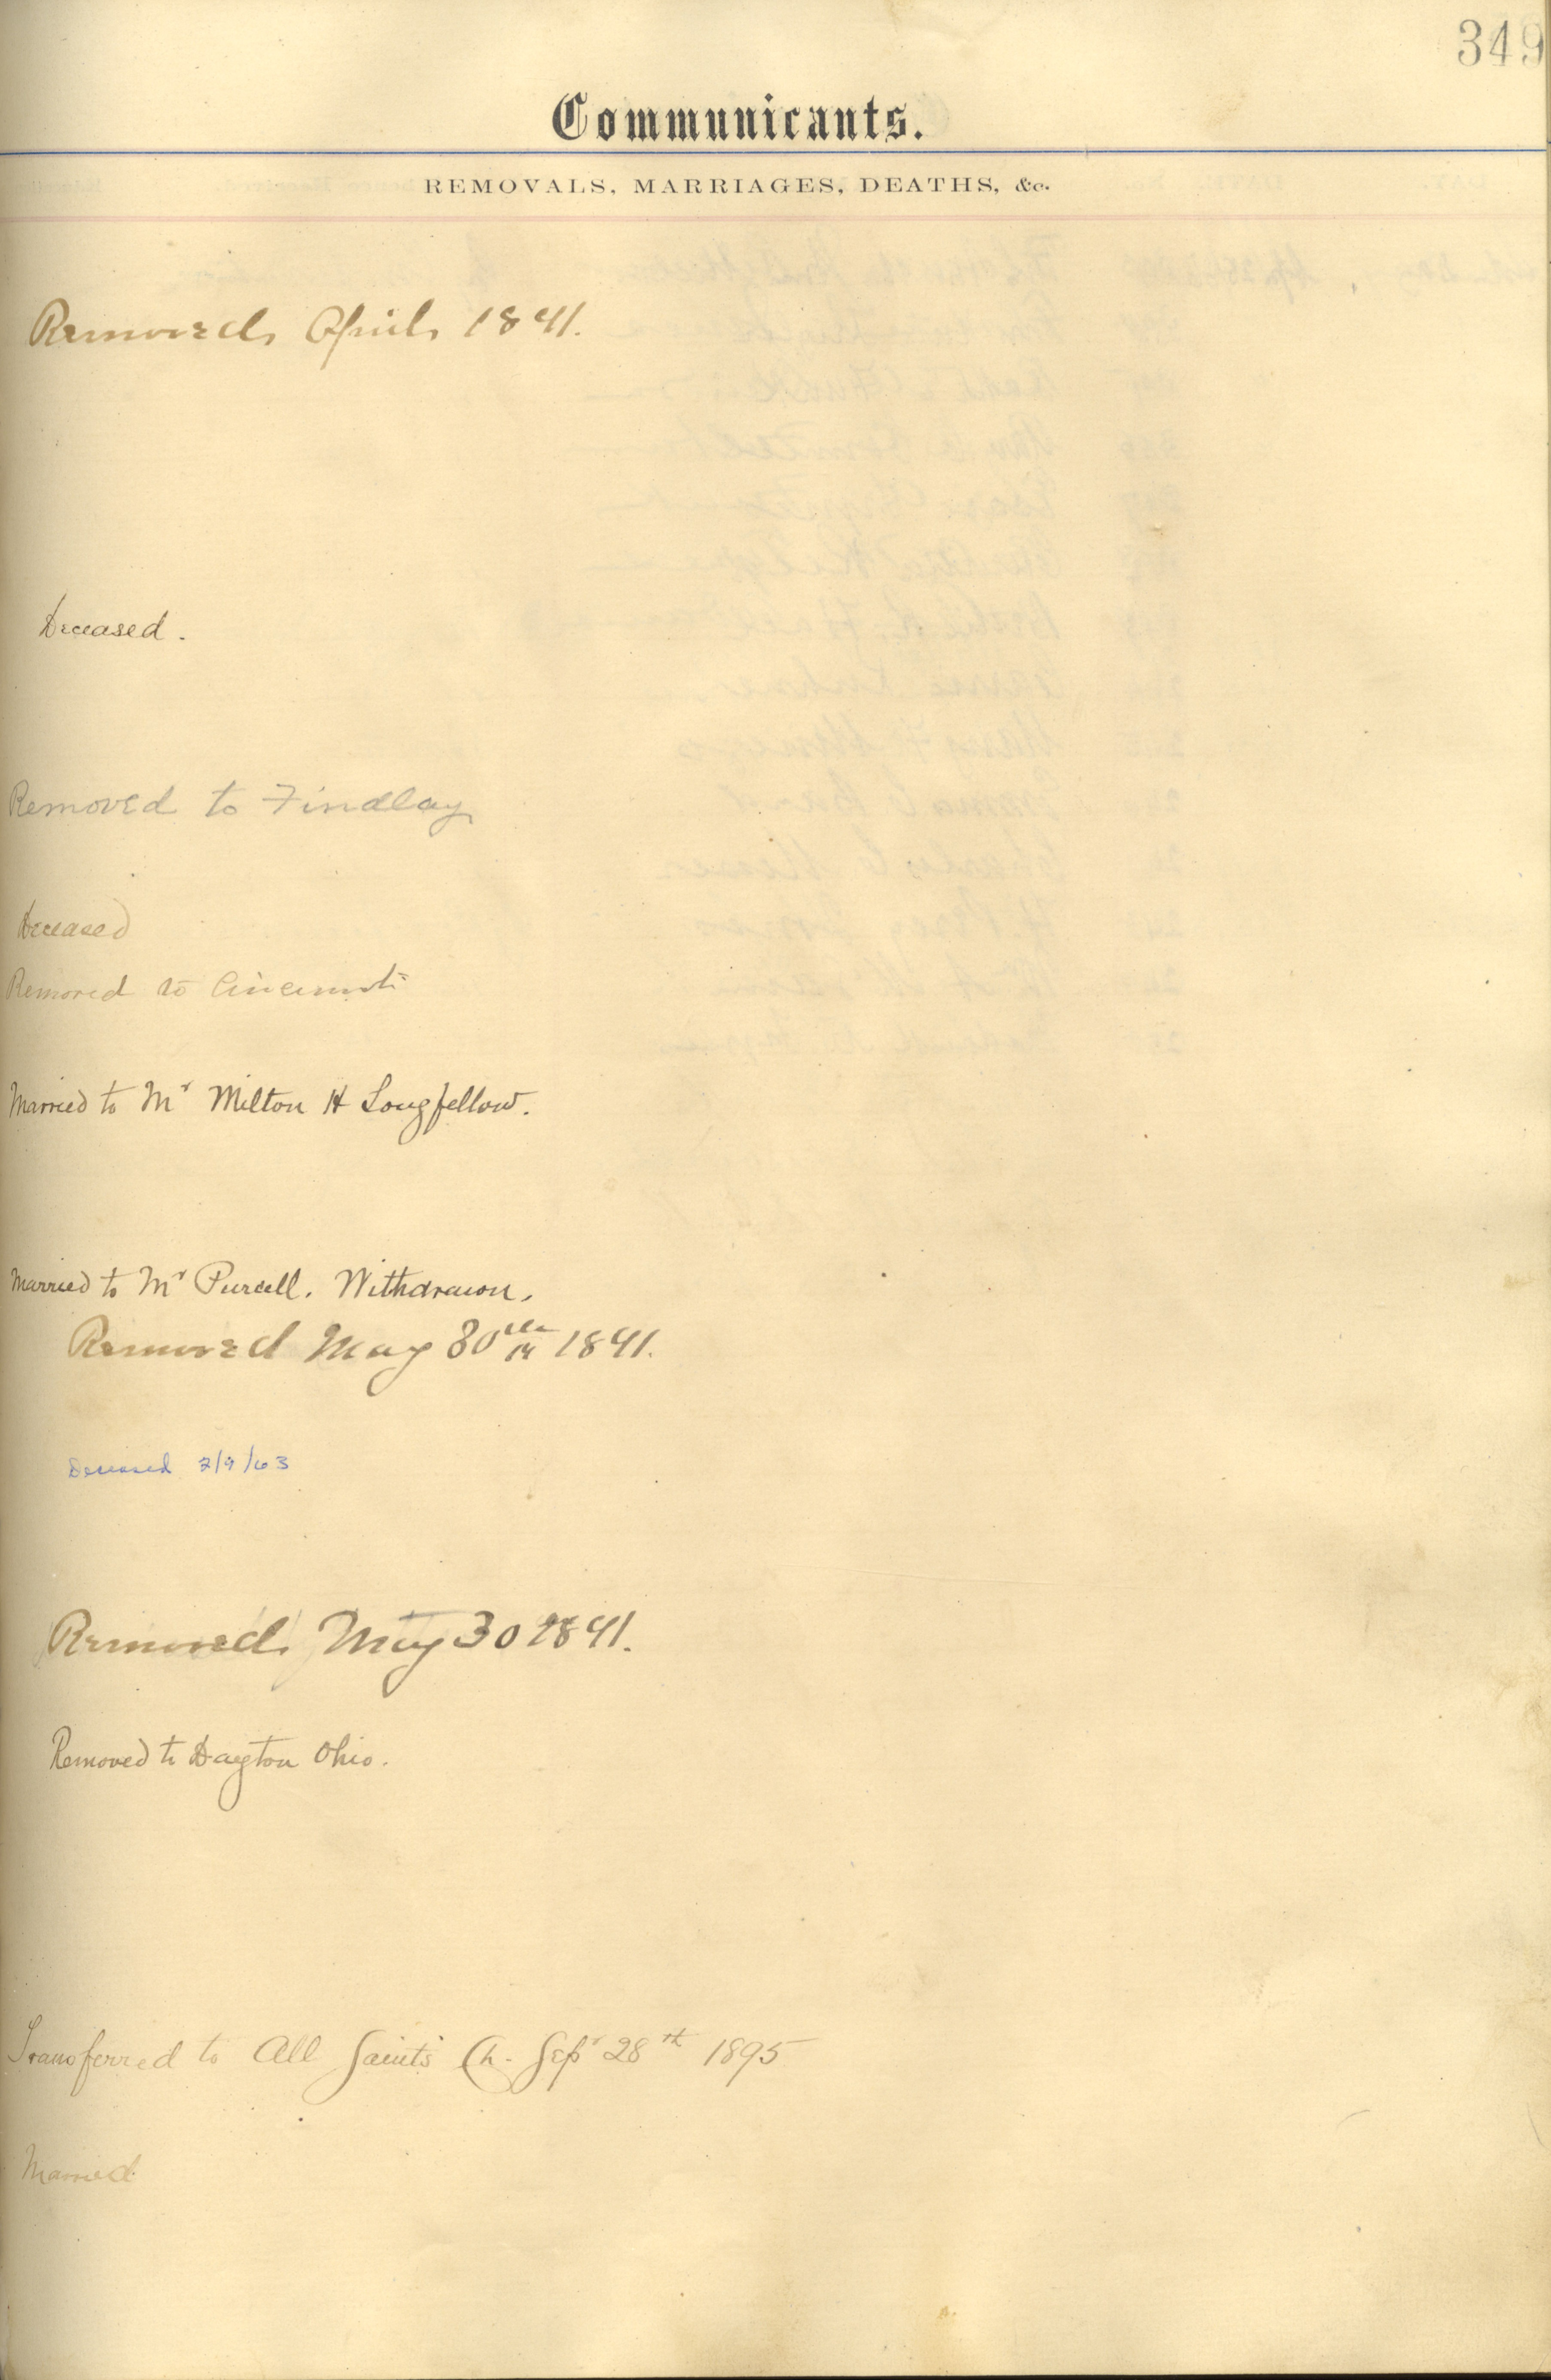 349
Communicants.
REMOVALS, MARRIAGES, DEATHS, &c.
Removed April 1841.
Deceased.
Removed to Findlay
Deceased
Removed to Cincinnati
Married to Mr Milton H Longfellow.
Married to Mr Purcell. Withdrawn.
Removed May 30th 1841.
Deceased 2/9/63
Removed May 30 1841.
Removed to Dayton Ohio.
Transferred to All Saints Ch. Sepr 28th 1895
Married